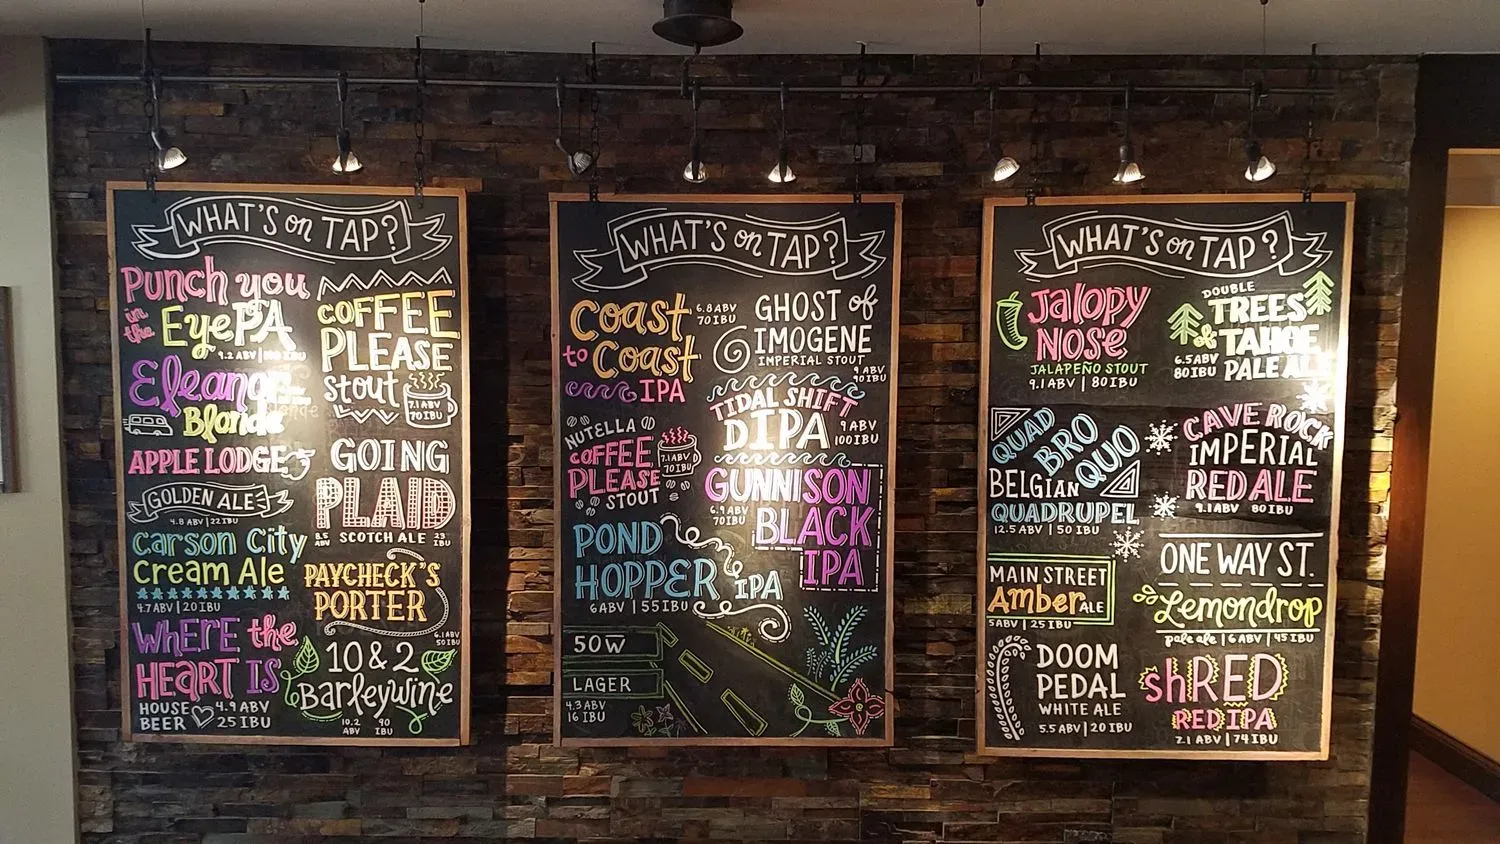 WHAT'S on TAP?
Punch you
in the EyePA
9.2 ABV | 100 IBU
Eleanor
Blonde
APPLE LODGE
GOLDEN ALE
4.8 ABV | 22 IBU
Carson City
Cream Ale
4.7 ABV | 20 IBU
WHERE the
HEART IS
HOUSE BEER
4.9 ABV
25 IBU
COFFEE
PLEASE
Stout
7.1 ABV
70 IBU
GOING
PLAID
8.5 ABV
SCOTCH ALE
23 IBU
PAYCHECK'S
PORTER
6.1 ABV
50 IBU
10 & 2
Barleywine
10.2 ABV
90 IBU
WHAT'S on TAP?
Coast
to Coast
IPA
6.8 ABV
70 IBU
NUTELLA
COFFEE
PLEASE
STOUT
7.1 ABV
70 IBU
POND
HOPPER IPA
6 ABV | 55 IBU
50W
LAGER
4.3 ABV
16 IBU
GHOST of
IMOGENE
IMPERIAL STOUT
9 ABV
90 IBU
TIDAL SHIFT
DIPA
9 ABV
100 IBU
GUNNISON
BLACK
IPA
6.9 ABV
70 IBU
WHAT'S on TAP?
Jalopy
Nose
JALAPEÑO STOUT
9.1 ABV | 80 IBU
QUAD
BRO
QUO
BELGIAN
QUADRUPEL
12.5 ABV | 50 IBU
MAIN STREET
Amber ALE
5 ABV | 25 IBU
DOOM
PEDAL
WHITE ALE
5.5 ABV | 20 IBU
DOUBLE
TREES
& TAHOE
PALE ALE
6.5 ABV
80 IBU
CAVE ROCK
IMPERIAL
RED ALE
9.1 ABV 80 IBU
ONE WAY ST.
Lemondrop
pale ale | 6 ABV | 45 IBU
shRED
RED IPA
7.1 ABV | 74 IBU